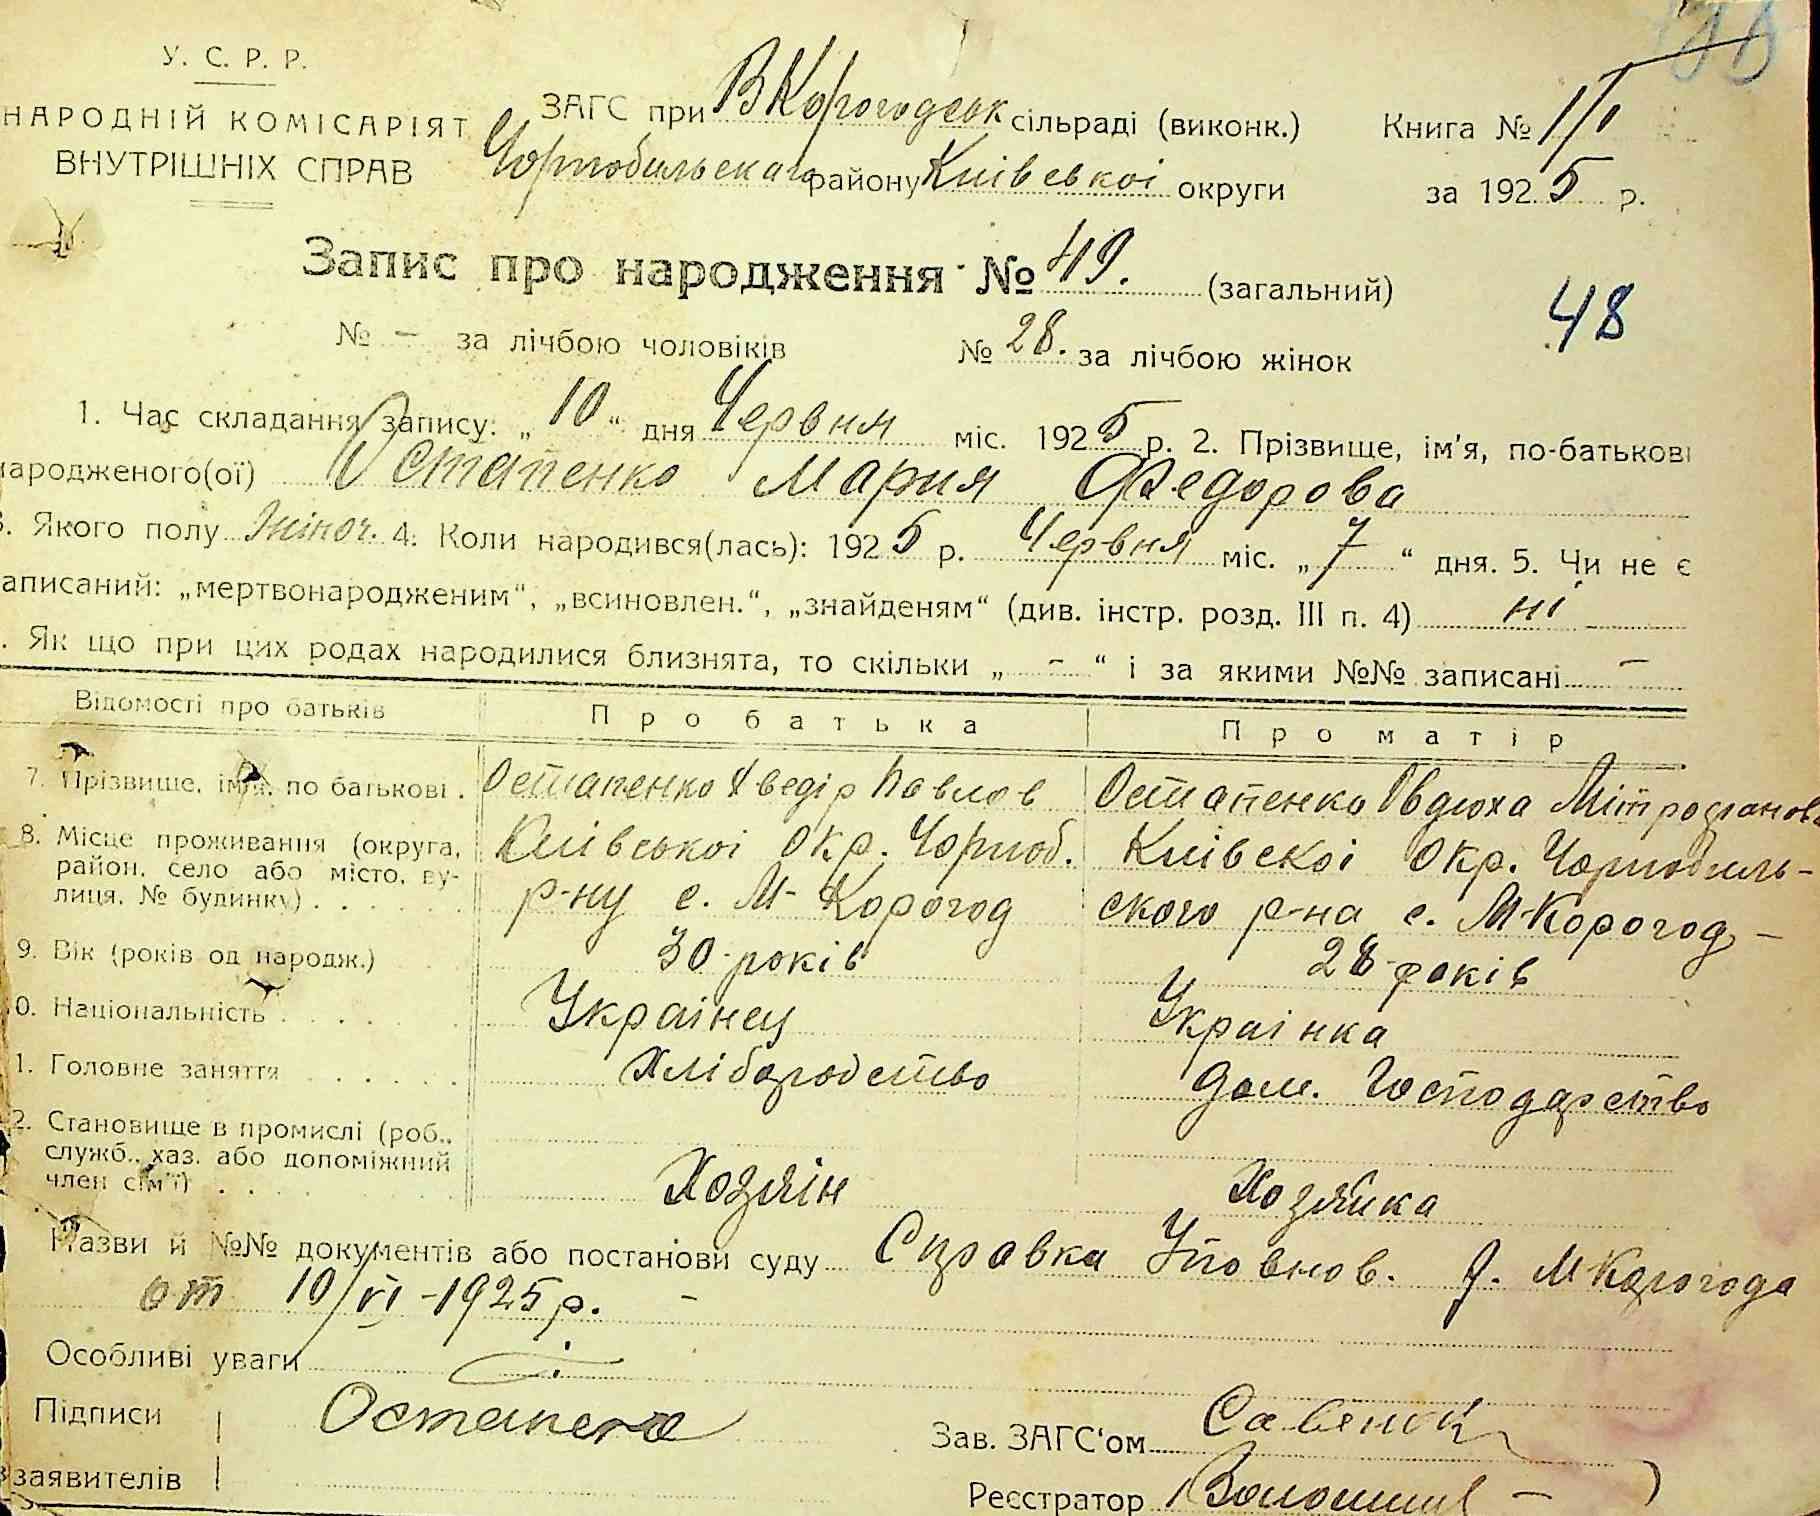 У. С. Р. Р.
НАРОДНІЙ КОМІСАРІЯТ
ВНУТРІШНІХ СПРАВ
ЗАГС при ВКорогодськ сільраді (виконк.)
Чорнобильскаго району Київськоі округи
Книга № 1/I
за 1925 р.
Запис про народження № 49. (загальний)
48
№ – за лічбою чоловіків № 28. за лічбою жінок
1. Час складання запису: „ 10 “ дня Червня міс. 1925 р. 2. Прізвище, ім'я, по-батькові
народженого(ої) Остапенко Мария Федорова
3. Якого полу Жіноч. 4. Коли народився(лась): 1925 р. Червня міс. „ 7 “ дня. 5. Чи не є
записаний: „мертвонародженим“, „всиновлен.“, „знайденям“ (див. інстр. розд. III п. 4) ні
. Як що при цих родах народилися близнята, то скільки „ – “ і за якими №№ записані –
Відомості про батьків Про батька Про матір
7. Прізвище, ім'я, по батькові . Остапенко Хведір Павлов Остапенко Овдюха Мітрофанова
8. Місце проживання (округа, район, село або місто, вулиця, № будинку) . . . . .
Київськоі Окр. Чорноб.
р-ну с. М-Корогод
Київскоі Окр. Чорнобиль-
ского р-на с. М-Корогод –
9. Вік (років од народж.) 30-років 28-років
0. Національність . . . . . Украінец Украінка
1. Головне заняття . . . . . . Хліборобство Дом. Господарство
2. Становище в промислі (роб., служб., хаз. або допоміжний член сім'ї) . . . . . . Хозяін Хозяйка
Назви й №№ документів або постанови суду Справка Уповнов. с. М-Корогода
от 10/VI-1925 р. –
Особливі уваги
Підписи
заявителів
Остапенко
Зав. ЗАГС‘ом Савенок
Реєстратор